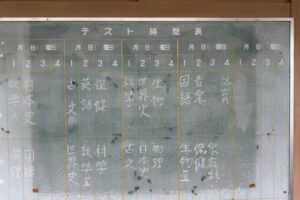 テスト時間表
月 日( 曜) 月 日( 曜) 月 日( 曜) 月 日( 曜) 月 日( 曜)
1 2 3 4 1 2 3 4 1 2 3 4 1 2 3 4 1 2 3 4
数学A 日本史 古文 英語 保健 科学 世界史 生物 国語 音楽 体育
倫理 国語 世界史 数学Ⅱ 科学 古文 日本史 物理 生物Ⅱ 保健 家庭科